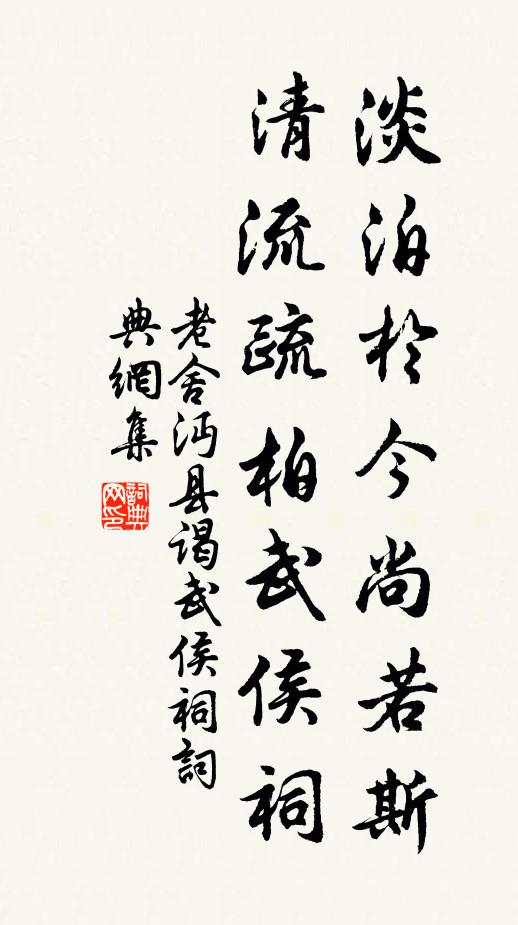 淡泊於今尚若斯
清流疏柏武侯祠
老舍沔县谒武侯祠詞
典網集
詞典
网印